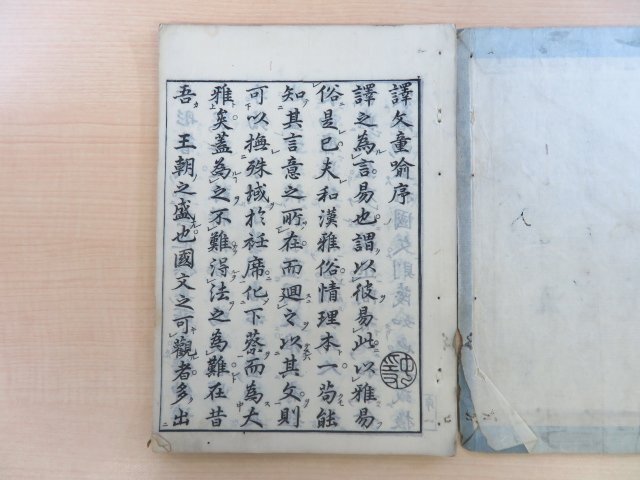 譯文童喩序
譯之為言易也謂以彼易此以雅易
俗是已夫和漢雅俗情理本一苟能
知其言意之所在而廻之以其文則
可以撫殊域於衽席化下蔡而為大
雅矣蓋為之不難得法之為難在昔
吾 王朝之盛也國文之可觀者多出